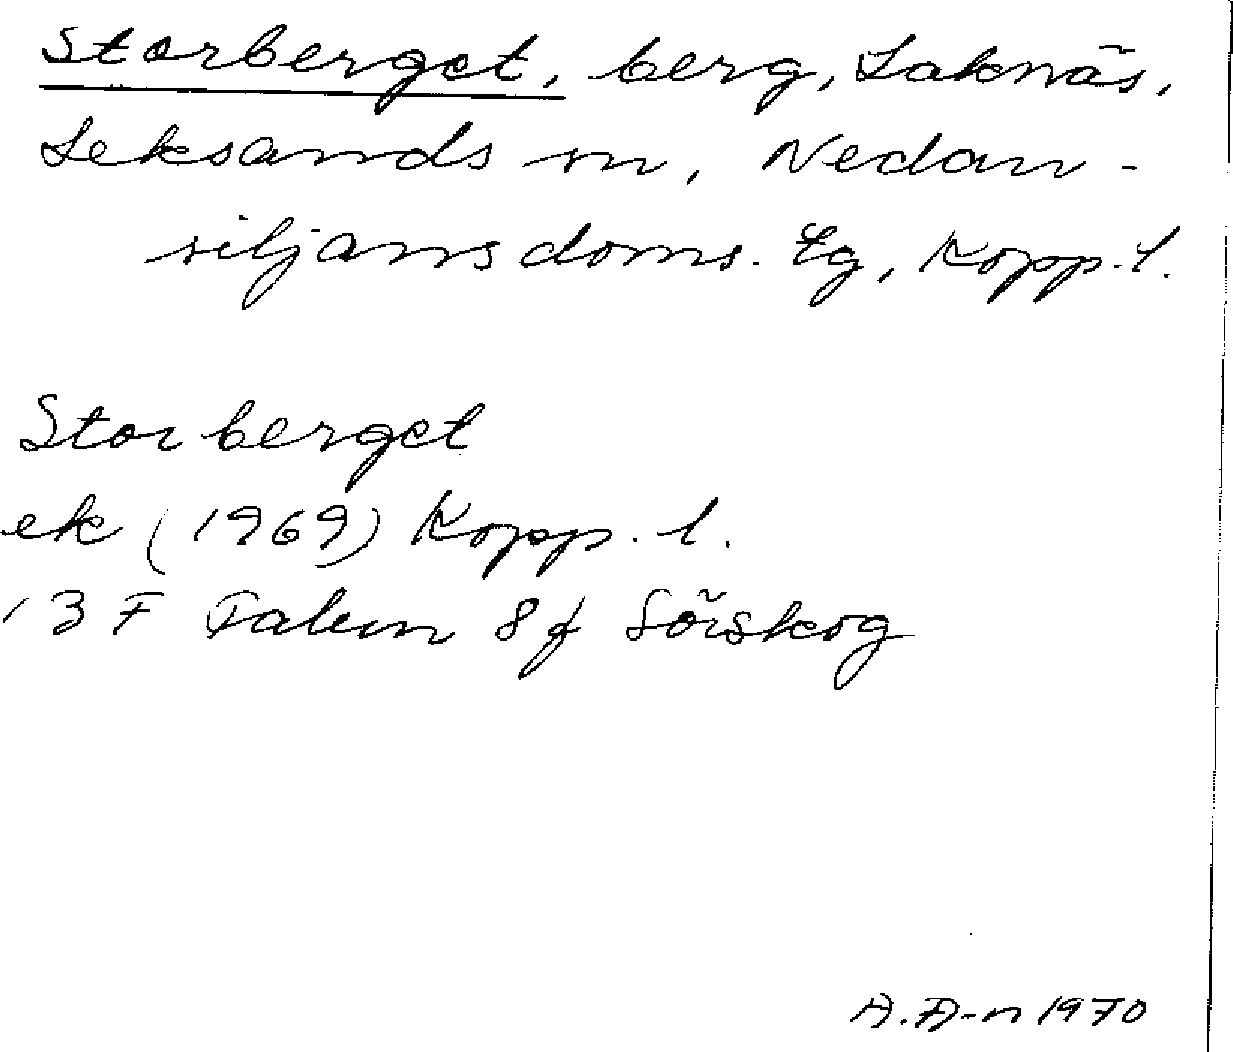 Storberget, berg, Laknäs,
Leksands sn, Nedan-
siljans doms. Lg, Kopp. l.
Storberget
ek (1969) Kopp. l.
13 F Falun 8 f Sörskog
A. A-n 1970